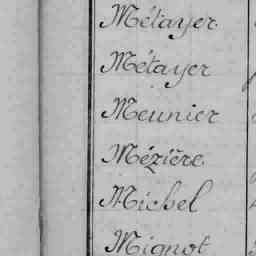 Métayer
Métayer
Meunier
Mézière
Michel
Mignot